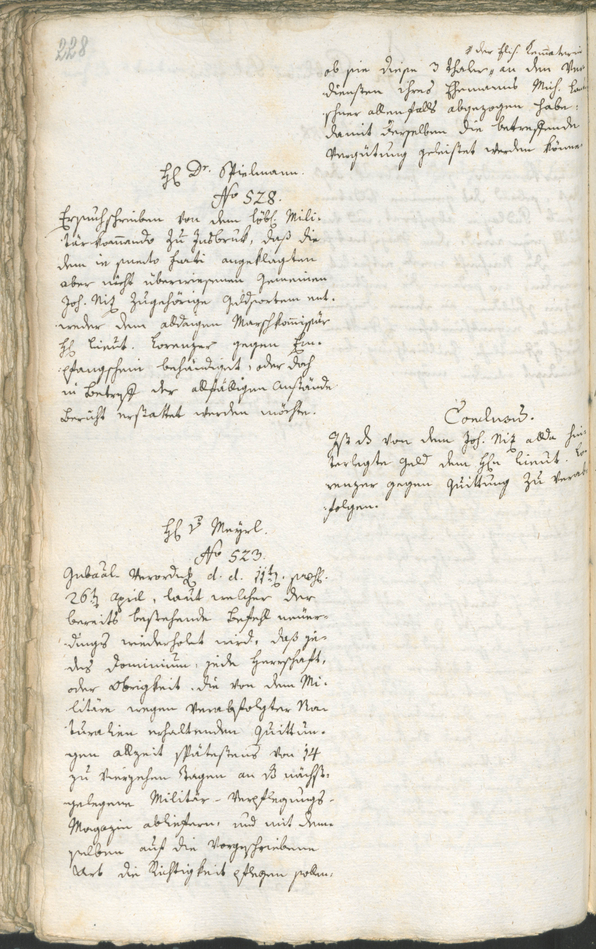 228
# der Elis. Kematerin
ob sie diese 3 Thaler # an dem Ver-
diensten ihres Ehemanns Mich. 
schner allenfalls abgezogen habe:
damit derselben die betreffende
Vergütung geleistet werden könne.
H. Dr. Spielmann.
No 528.
Ersuchschreiben von dem löbl. Mili-
tärkommando zu Insbruk, daß die
dem in puncto furti angeklagten
aber nicht überwiesenen Gemeinen
Joh. Nix zugehörige Geldsorten ent-
weder dem alldaigen Marschkommissär
H. Lieut. Lorenzer gegen Em-
pfangschein behändiget, oder doch
in Betreff der allfälligen Anstände
Bericht erstattet werden möchte.
Conclusum.
Ist das von dem Joh. Nix allda hin-
terlegte Geld dem Hhn Lieut. Lo-
renzer gegen Quittung zu verab-
folgen.
H. v. Mayrl.
No 523.
Gubaal Verordng d. d. 11ten, 
26ten April, laut welcher der
bereits bestehende Befehl neuer-
dings wiederholet wird, daß je-
des Dominium, jede Herrschaft,
oder Obrigkeit die von dem Mi-
litäre wegen verabfolgter Na-
turalien erhaltenden Quittun-
gen allzeit spätestens von 14
zu vierzehen Tagen an das nächst-
gelegene Militär-Verpflegungs-
Magazin abliefern, und mit dem-
selben auf die vorgeschriebene
Art die Richtigkeit pflegen solle.